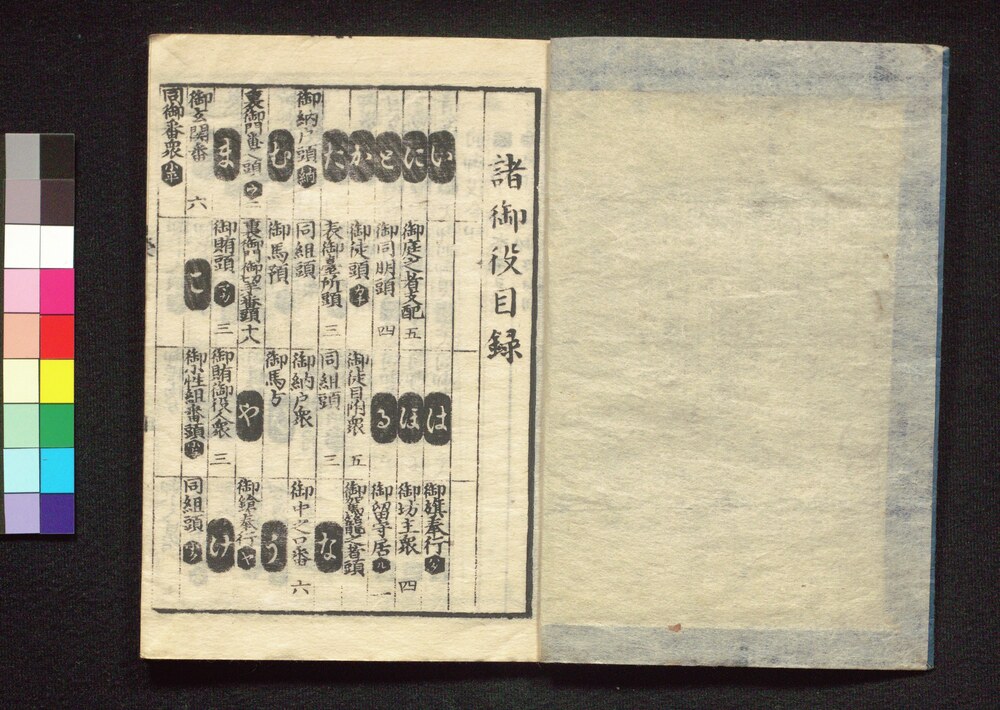 諸御役目録
い
は
御旗奉行
に
御庭之者支配 五
ほ
御坊主衆 四
と
御同朋頭 四
る
御留守居 ル 一
か
御徒頭
御徒目附衆 五
御駕籠之者頭
た
表御臺所頭 三
同組頭 三
な
御納戸頭 納
同組頭
御納戸衆
御中之口番 六
む
御馬預
御馬方
う
裏御門番之頭
裏御門御切手番頭
や
御鎗奉行 ヤ
ま
御賄頭 三
御賄御役人衆 三
け
御玄関番 六
こ
御小性組番頭
同組頭
同御番衆